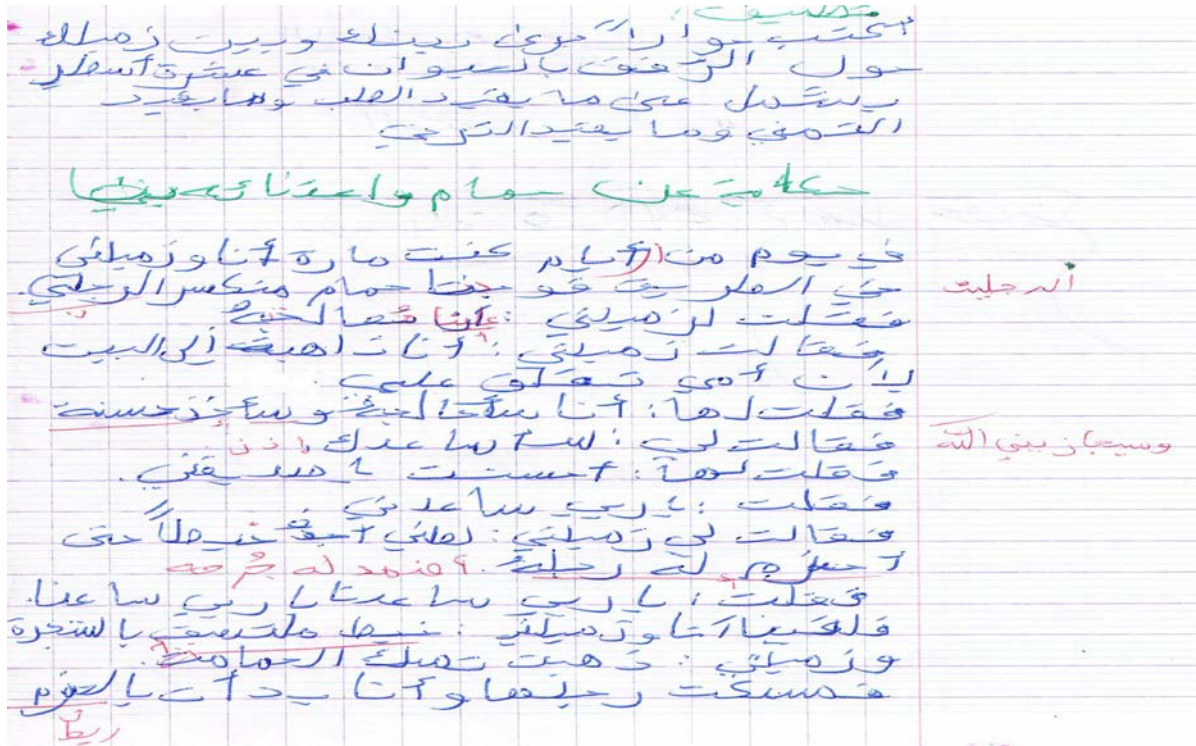 تطبيق:
أكتب حوارا جرى بينك وبين زميلك
حول الرفق بالحيوان في عشرة أسطر
يشمل على ما يفيد الطلب وما يفيد
التمني وما يفيد الترجي
حكاية عن حمام واعتنائه بيضا
في يوم من الأيام كنت مارة أنا وزميلتي
في الطريق فوجدنا حمام منكسر الرجلي.
الرجلين
فقلت لزميلتي : هيا نعالجه
فقالت زميلتي : أنا ذاهبة إلى البيت
لأن أمي تقلق علي.
فقلت لها : أنا سأعالجه وسأخذ حسنة
وسيجازيني الله
فقالت لي : سأساعدك إذن
فقلت لها : أحسنت يا صديقتي.
فقلت : ياربي ساعدني
فقالت لي زميلتي : لعلني أجد خيطاً حتى
له رجله. أضمد له جرحه
فقلت : يا ربي ساعدنا يا ربي ساعدنا.
فلقينا أنا وزميلتي : خيط ملتصق بالشجرة
وزميلتي : ذهبت تمسك الحمامة.
فمسكت رجلها وأنا بدأت بالحزم
ربط